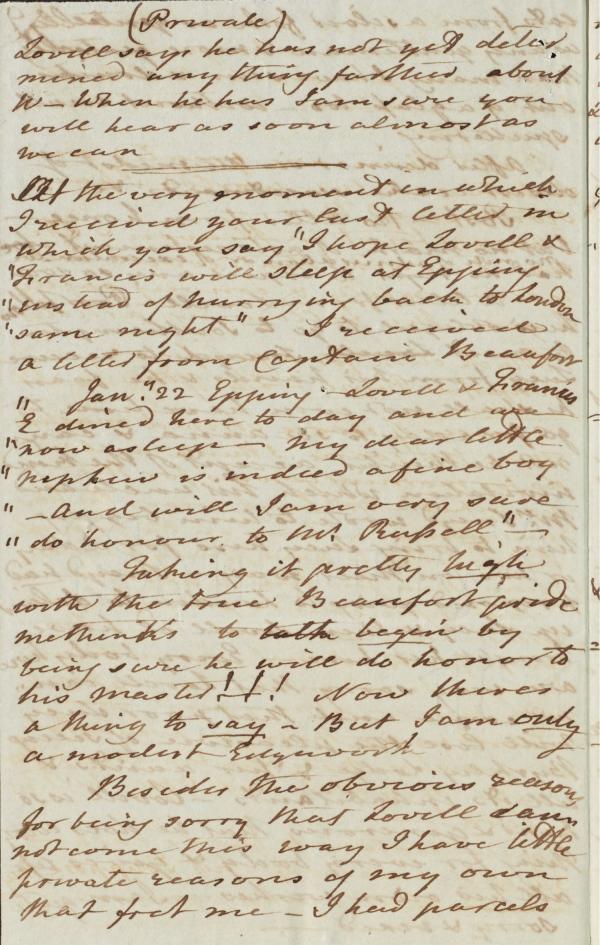 (Private)
Lovell says he has not yet deter
mined any thing farther about
W - When he has I am sure you
will hear as soon almost as
we can
At the very moment in which
I received your last letter in
which you say "I hope Lovell &
"Francis will sleep at Epping
"instead of hurrying back to London
"same night" I received
a letter from Captain Beaufort
" Jan.y 22 Epping - Lovell & Francis
E dined here to day and are
"now asleep - My dear little
"nephew is indeed a fine boy
" - and will I am very sure
" do honour to Mr. Russell" -
Taking it pretty high
with the true Beaufort pride
methinks to begin by
being sure he will do honor to
his master!!! Now theres
a thing to say - But I am only
a modest Edgeworth
Besides the obvious reasons
for being sorry that Lovell
not come this way I have little
private reasons of my own
that fret me - I had parcels